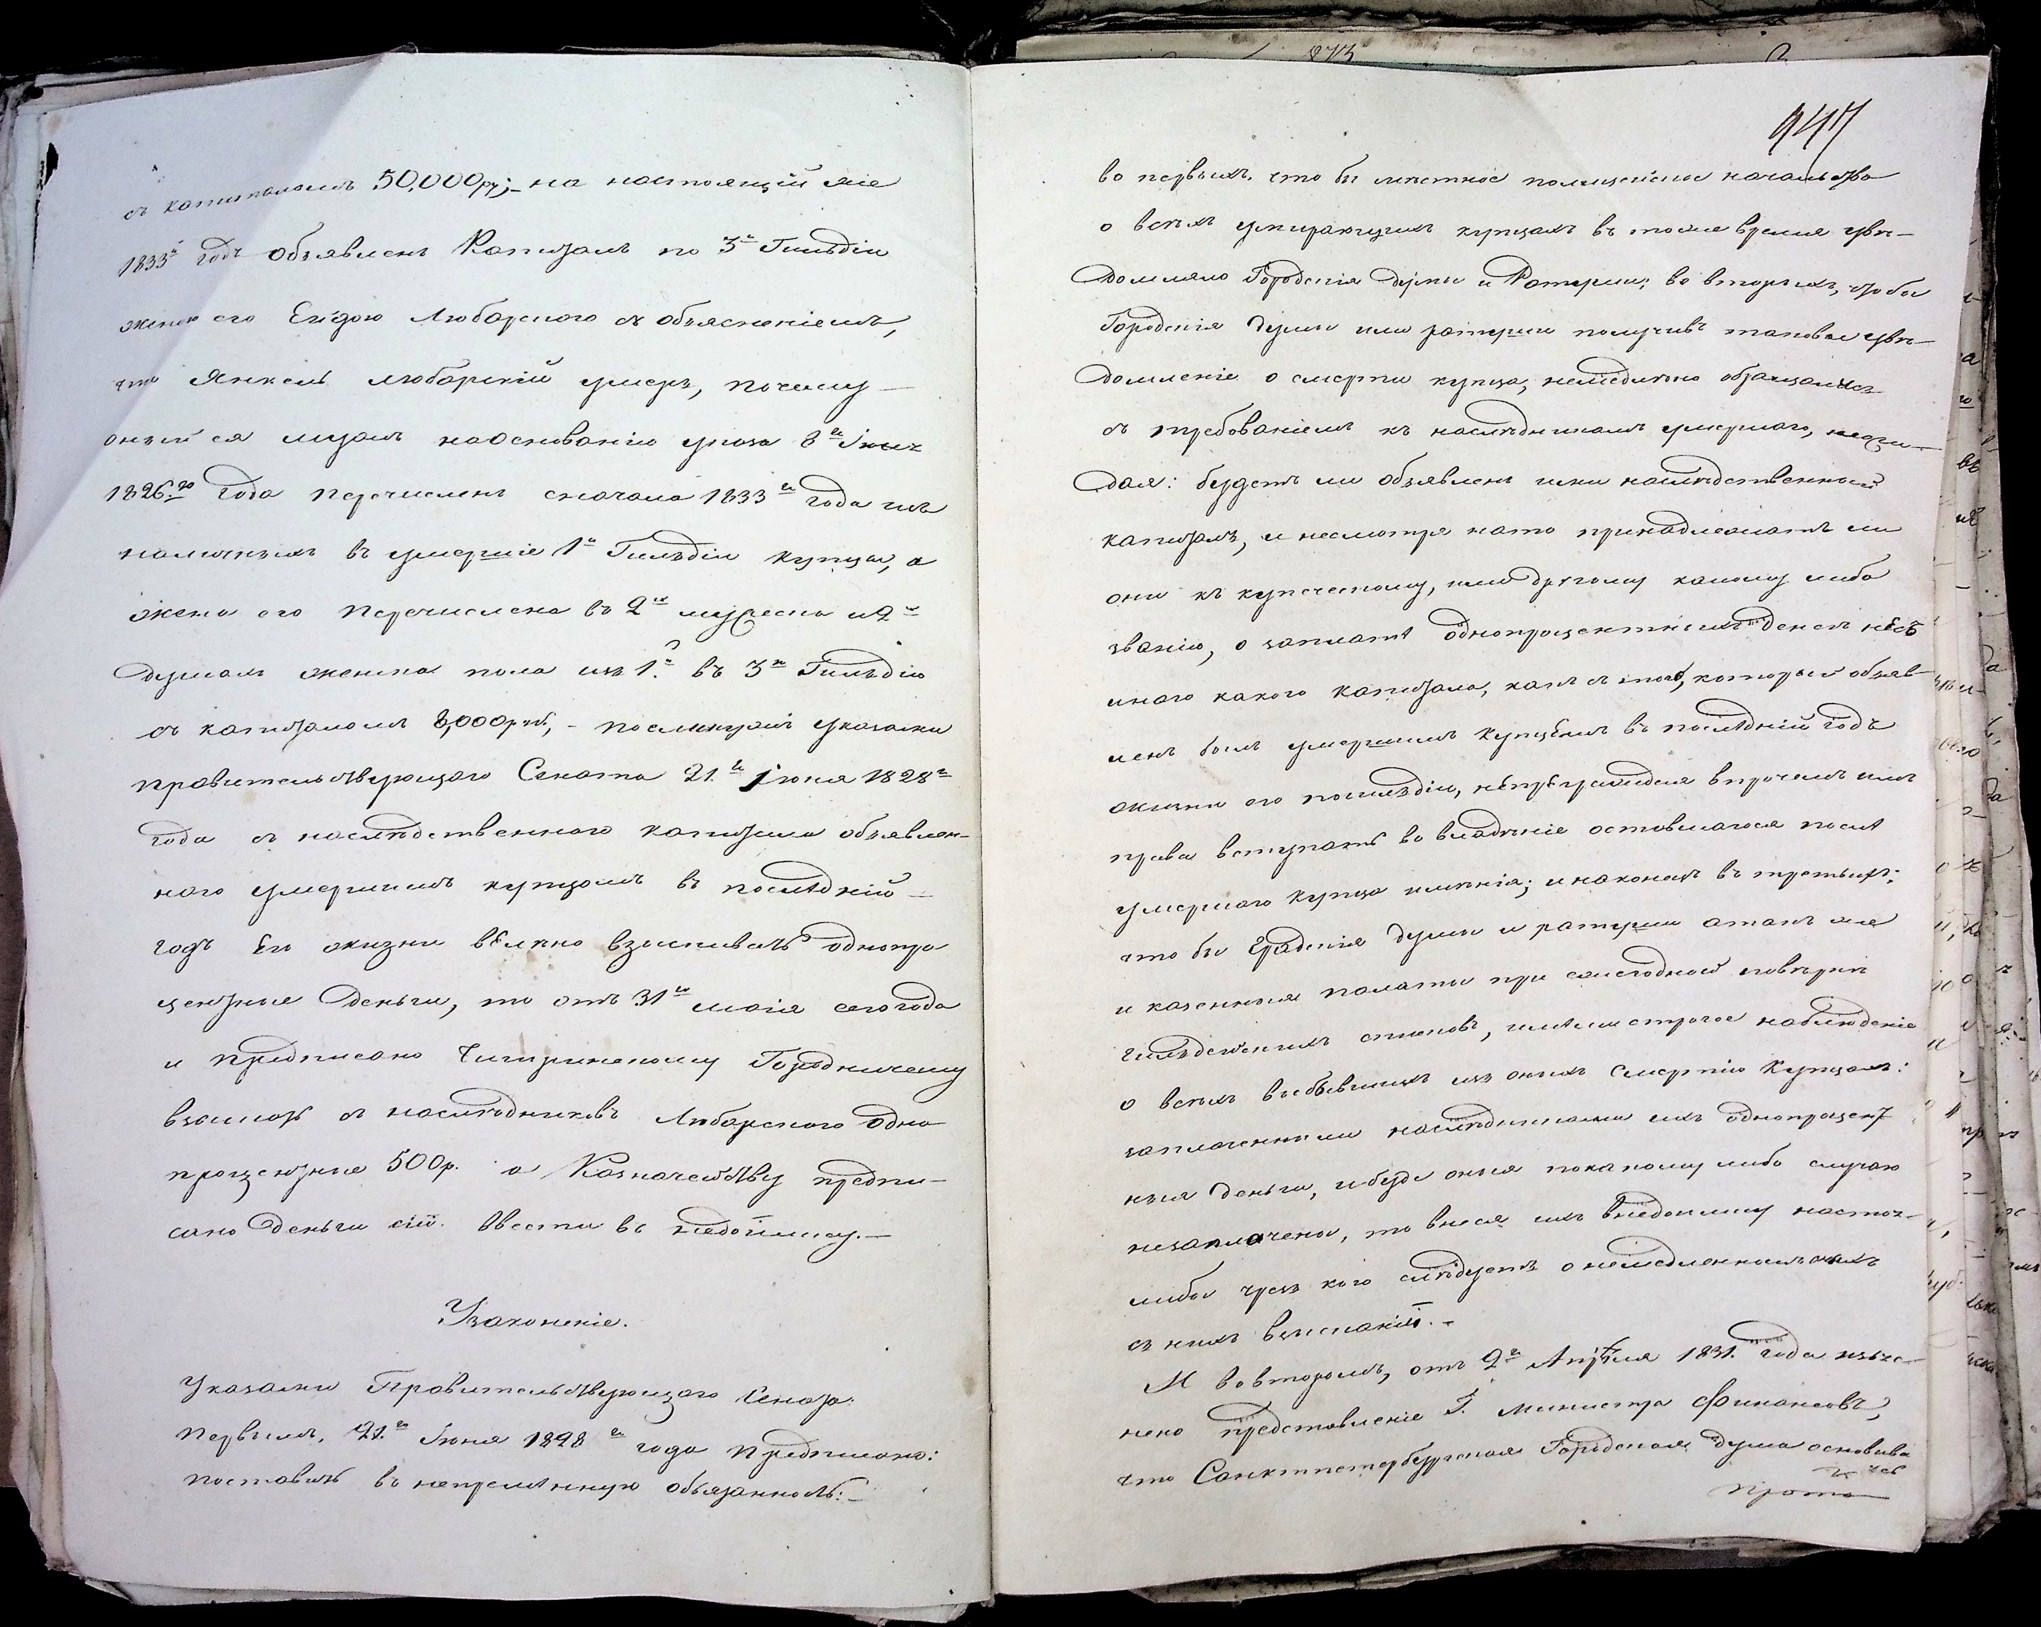 съ капиталомъ 50,000 ру; на настоящій же
1833й годъ объявленъ Капиталъ по 3й Гильдіи
женою его Ейдою Любарского съ объясненіемъ,
что Янкель Любарскій умеръ, почему
оный ея мужъ наоснованіи указа 8го
1826го года перечисленъ сначала 1833го года изъ
наличныхъ въ умершіе 1й Гильдіи купцы, а
жена его перечислена въ 2хъ мужеска и 2хъ
душахъ женска пола изъ 1й въ 3ю Гильдію
съ капиталомъ 8,000 руб, – послику жъ указами
Правительствующаго Сената 21го Іюня 1828го
года съ наслѣдственного капитала объявлен-
ного умершимъ купцомъ въ послѣдній
годъ его жизни велѣно взыскивать однопро
центные деньги, то отъ 31го маія сего года
и предписано Чигиринскому Городничему
взыскать съ наслѣдниковъ Любарского одно
процентные 500 р. а Казначейству предпи-
сано деньги сіи ввести въ недоимку.–
Узаконеніе.
Указами Правительствующаго Сената:
Первымъ, 21го Іюня 1828го года предписано:
поставить въ непремѣнную обязанность:–
947
во первыхъ, что бы мѣстное полицейское начальство
о всѣхъ умирающихъ купцахъ въ тоже время увѣ-
домляло Городскія Думы и Ратуши; во вторыхъ, чтобы
Городскія Думы или ратуши получивъ таковое увѣ-
домленіе о смерти купца, немедлѣнно обращались
съ требованіемъ къ наслѣдникамъ умершаго, неожи-
дая: будетъ ли объявленъ ими наслѣдственный
капиталъ, и несмотря нато принадлежатъ ли
они къ купеческому, или другому какому либо
званію, о заплатѣ однопроцентныхъ денегъ несъ
инаго какого капитала, какъ съ того, который объяв-
ленъ былъ умершимъ купцемъ въ послѣдній годъ
жизни его погильдіи, впрочемъ имъ
права вступать во владѣніе оставшагося послѣ
умершаго купца имѣнія; и наконецъ въ третьихъ:
что бы Градскія Думы и ратуши а такъ же
и казенныя палаты при ежегодной повѣркѣ
гильдейскихъ списковъ, имѣли строгое наблюденіе
о всѣхъ выбывшихъ изъ оныхъ смертію Купцахъ:
заплаченыли наслѣдниками ихъ однопроцент
ныя деньги, и буде оныя покакому либо случаю
незаплачены, то внеся ихъ внедоимку настоя-
либы чрезъ кого слѣдуетъ о немедленномъ оныхъ
съ нихъ взысканіи.–
И вовторомъ, отъ 2го Апрѣля 1831. года изъяс-
нено представленіе Г. Министра Финансовъ,
что Санктпетербургская Городская Дума основыва